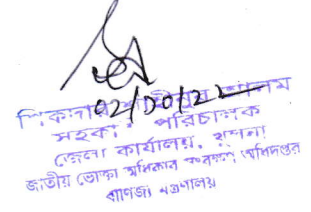 02/00/22
সহকারী পরিচালক
জেলা কার্যালয়, খুলনা
জাতীয় ভোক্তা অধিকার সংরক্ষণ অধিদপ্তর
বাণিজ্য মন্ত্রণালয়